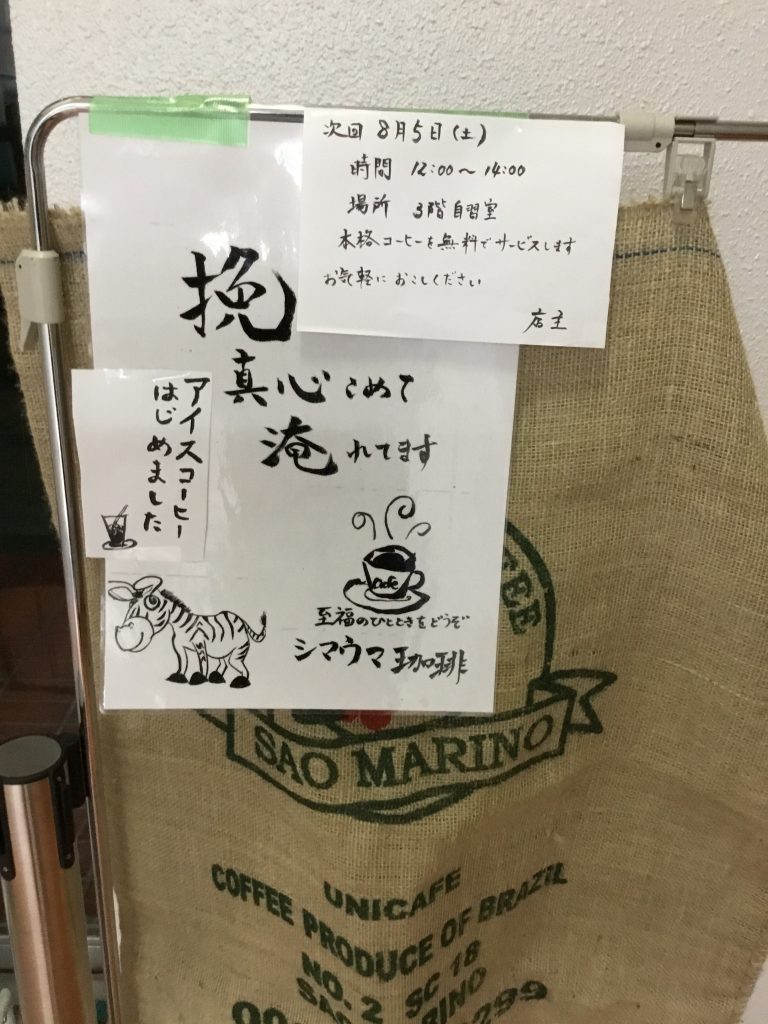 次回 8月5日(土)
時間 12:00〜14:00
場所 3階自習室
本格コーヒーを無料でサービスします
お気軽におこしください
店主
挽
真心こめて
淹れてます
アイスコーヒー
はじめました
Cafe
至福のひとときをどうぞ
シマウマ珈琲
SAO MARINO
UNICAFE
COFFEE PRODUCE OF BRAZIL
NO. 2 SC 18